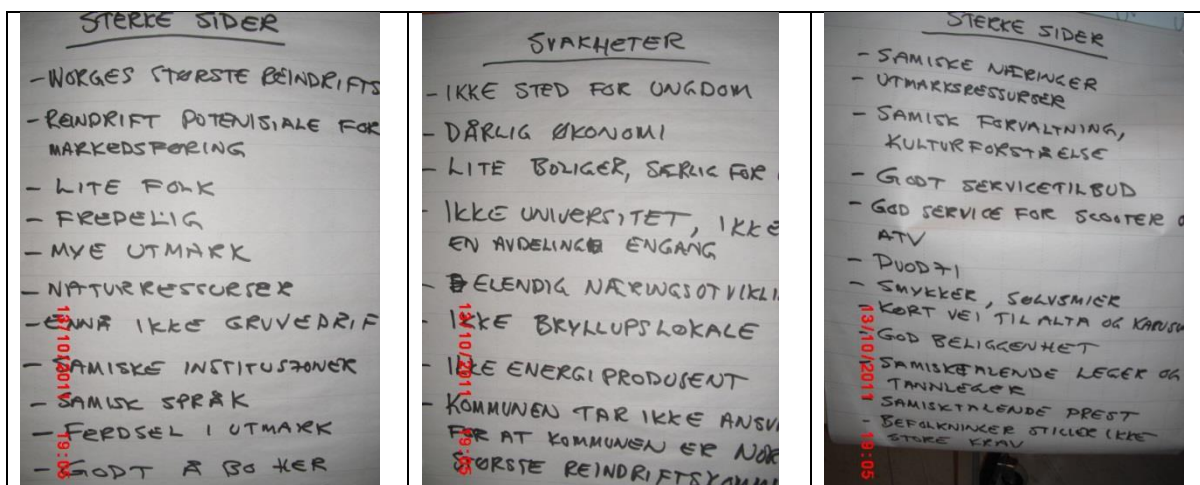 STERKE SIDER
- NORGES STØRSTE REINDRIFTS
- REINDRIFT POTENISIALE FOR
MARKEDSFØRING
- LITE FOLK
- FREDELIG
- MYE UTMARK
- NATURRESSURSER
- ENNÅ IKKE GRUVEDRIF
- SAMISKE INSTITUSJONER
- SAMISK SPRÅK
- FERDSEL I UTMARK
- GODT Å BO HER
SVAKHETER
- IKKE STED FOR UNGDOM
- DÅRLIG ØKONOMI
- LITE BOLIGER, SÆRLIG FOR
- IKKE UNIVERSITET, IKKE
EN AVDELING ENGANG
- ELENDIG NÆRINGSUTVIKLI
- IKKE BRYLLUPSLOKALE
- IKKE ENERGIPRODUSENT
- KOMMUNEN TAR IKKE ANSV
FOR AT KOMMUNEN ER NOR
STØRSTE REINDRIFTSKOMM
13/10/2011 19:05
STERKE SIDER
- SAMISKE NÆRINGER
- UTMARKSRESSURSER
- SAMISK FORVALTNING,
KULTURFORSTÅELSE
- GODT SERVICETILBUD
- GOD SERVICE FOR SCOOTER O
ATV
- DUODJI
- SMYKKER, SØLVSMIER
- KORT VEI TIL ALTA OG
- GOD BELIGGENHET
- SAMISKTALENDE LEGER OG
TANNLEGER
- SAMISKTALENDE PREST
- BEFOLKNINGER STILLER IKKE
STORE KRAV
13/10/2011 19:05